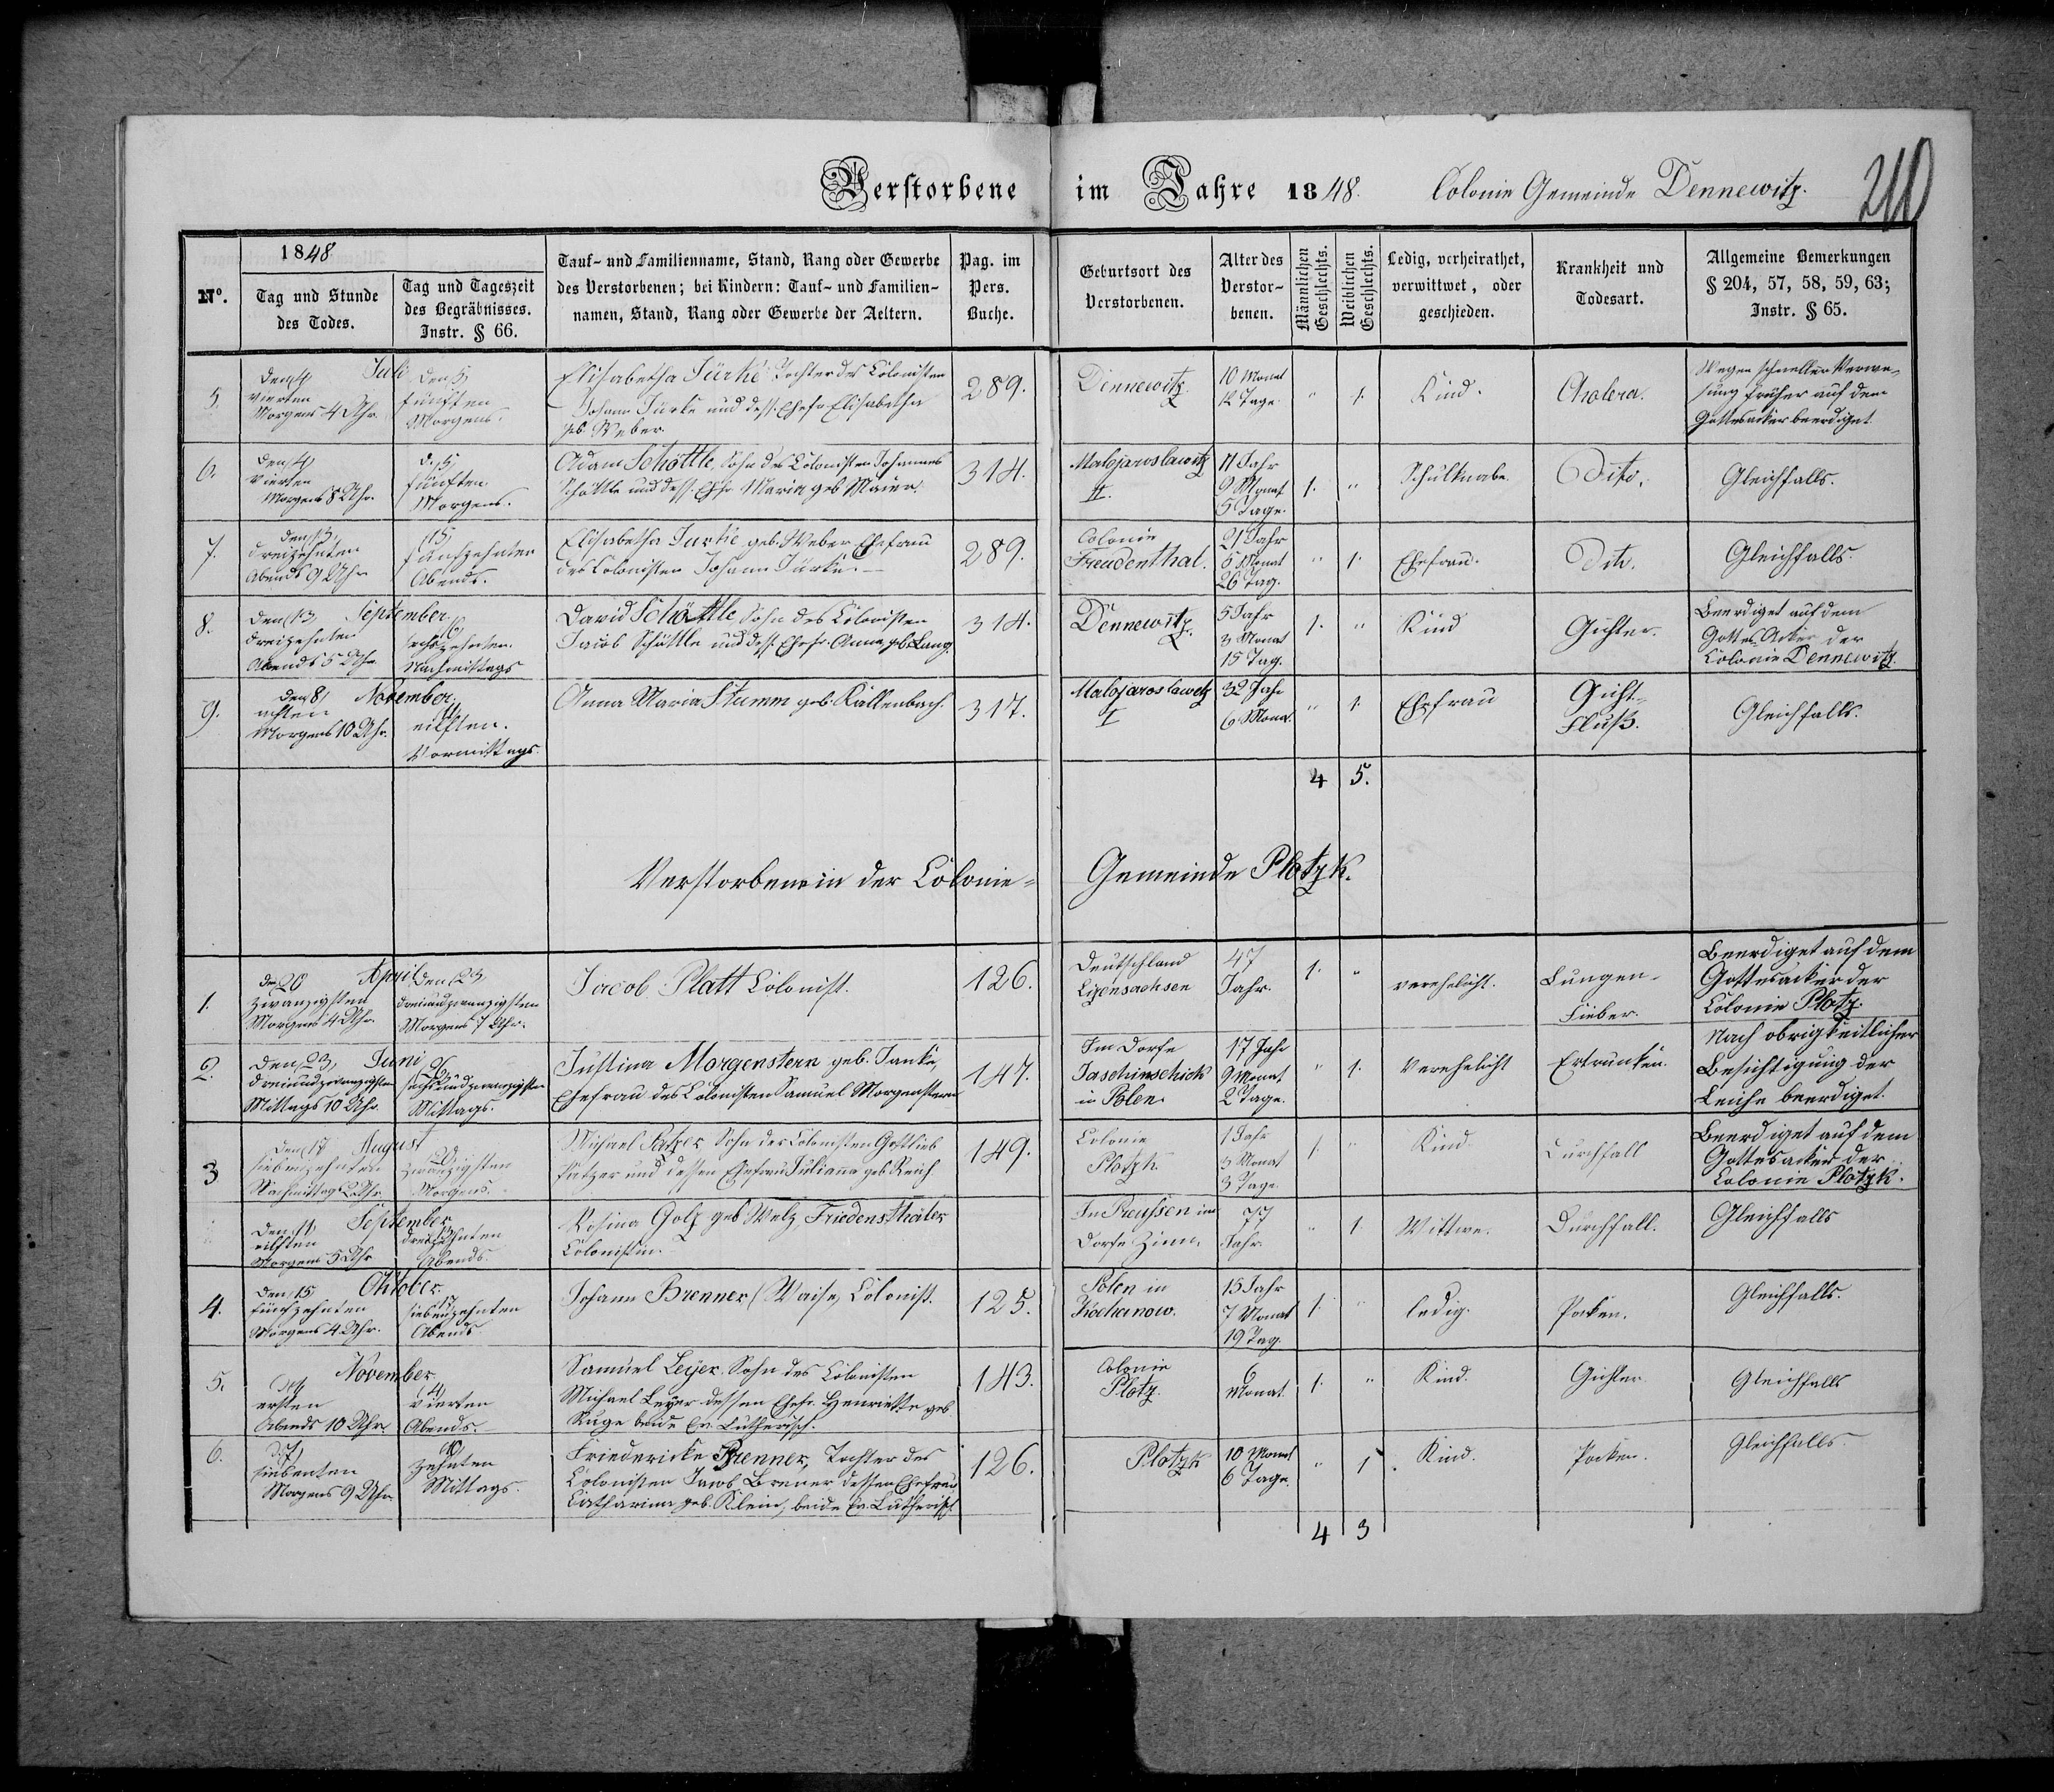 Verstorbene im Jahre 1848. Colonie Gemeinde Dennewitz.
210
No.
1848
Tag und Stunde
des Todes.
Tag und Tageszeit
des Begräbnisses.
Instr. § 66.
Tauf- und Familienname, Stand, Rang oder Gewerbe
des Verstorbenen; bei Kindern: Tauf- und Familien-
namen, Stand, Rang oder Gewerbe der Aeltern.
Pag. im
Pers.
Buche.
Geburtsort des
Verstorbenen.
Alter des
Verstor-
benen.
Männlichen
Geschlechts.
Weiblichen
Geschlechts.
Ledig, verheirathet,
verwittwet, oder
geschieden.
Krankheit und
Todesart.
Allgemeine Bemerkungen
§ 204, 57, 58, 59, 63;
Instr. § 65.
5.
Juli
den 4
vierten
Morgens 4 Uhr.
den 5
fünften
Morgens.
Elisabetha Jürke Tochter des Colonisten
Johann Jürke und dess. Ehefr Elisabetha
geb. Weber.
289.
Dennewitz
10 Monat
12 Tage.
" 1.
Kind.
Cholera.
Wegen schneller Verwe-
sung früher auf dem
Gottesacker beerdiget.
6.
den 4
vierten
Morgens 8 Uhr.
d. 5
fünften
Morgens.
Adam Schöttle, Sohn des Colonisten Johannes
Schöttle und dess. Ehfr. Maria geb Maier.
314.
Malojaroslawitz
II.
11 Jahr
9 Monat
5 Tage.
1. "
Schulknabe
Dito.
Gleichfalls.
7.
den 13
dreizehnten
Abends 9 Uhr
15
fünfzehnten
Abends.
Elisabetha Jürke geb. Weber Ehefrau
des Colonisten Johann Jürke.
289.
Colonie
Freudenthal.
21 Jahr
5 Monat
26 Tag.
" 1.
Ehefrau.
Dito.
Gleichfalls.
8.
September
den 13
dreizehnten
Abends 5 Uhr.
16
sechszehnten.
Nachmittags
David Schöttle Sohn des Colonisten
Jacob Schöttle und dess. Ehefr. Anna geb Lang.
314.
Dennewitz.
5 Jahr
3 Monat
15 Tag.
1. "
Kind
Gichter.
Beerdiget auf dem
Gottes Acker der
Colonie Dennewitz.
9.
November
den 8
achten
Morgens 10 Uhr.
11
eilften.
Vormittags.
Anna Maria Stumm geb. Kallenbach.
317.
Malojaroslawetz
I
32 Jahr
6 Monat.
" 1.
Ehefrau
Gicht-
Fluß.
Gleichfalls.
4 5.
Verstorbene in der Colonie-Gemeinde Plotzk.
1.
April
den 20
zwanzigsten
Morgens 4 Uhr.
den 23
dreiundzwanzigsten
Morgens 7 Uhr.
Jacob Platt Colonist.
126.
Deutschland
Lizensachsen
47
Jahr.
1. "
verehelicht.
Lungen-
Fieber.
Beerdiget auf dem
Gottesacker der
Colonie Plotz.
2.
Juni
den 23,
dreiundzwanzigsten
Mittags 10 Uhr.
26
sechsundzwanzigsten
Mittags.
Justina Morgenstern geb. Janke,
Ehefrau des Colonisten Samuel Morgenstern
147.
Im Dorfe
Jaschinschick
in Polen.
17 Jahr
9 Monat
2 Tage.
" 1.
Verehelicht
Ertrunken.
Nach obrigkeitlicher
Besichtigung der
Leiche beerdiget.
3
August
den 17
siebenzehnten
Nachmittags 2 Uhr
20
zwanzigsten
Morgens.
Michael Fatzer Sohn des Colonisten Gottlieb
Fatzer und dessen Ehefrau Juliana geb. Reich
149.
Colonie
Plotzk.
1 Jahr
3 Monat
3 Tage.
1. "
Kind
Durchfall
Beerdiget auf dem
Gottesacker der
Colonie Plotzk.
September
den 11
eilften
Morgens 5 Uhr
13
dreizehnten
Abends.
Rosina Golz geb Welz Friedensthaler
Colonistin.
In Preussen im
Dorfe Zinn.
77
Jahr.
" 1.
Wittwe.
Durchfall.
Gleichfalls
4.
Oktober.
den 15
fünfzehnten
Morgens 4 Uhr.
17
siebenzehnten
Abends
Johann Brenner (Waise, Colonist.
125.
Polen in
Kochanow.
15 Jahr
7 Monat
19 Tag.
1. "
ledig.
Pocken.
Gleichfalls.
5.
November
ersten
Abends 10 Uhr.
4
vierten
Abends.
Samuel Leyer. Sohn des Colonisten
Michael Leyer dessen Ehefr. Henriette geb
Ruge beide Ev. Lutherisch.
143.
Colonie
Plotz.
6
Monat.
1. "
Kind.
Gichter
Gleichfalls
6.
7
siebenten
Morgens 9 Uhr
10
zehnten
Mittags.
Friedericke Brenner, Tochter des
Colonisten Jacob Brenner dessen Ehefrau
Catharina geb. Klein, beide Ev. Lutherisch
126.
Plotzk
10 Monat
6 Tage.
" 1
Kind.
Pocken.
Gleichfalls.
4 3